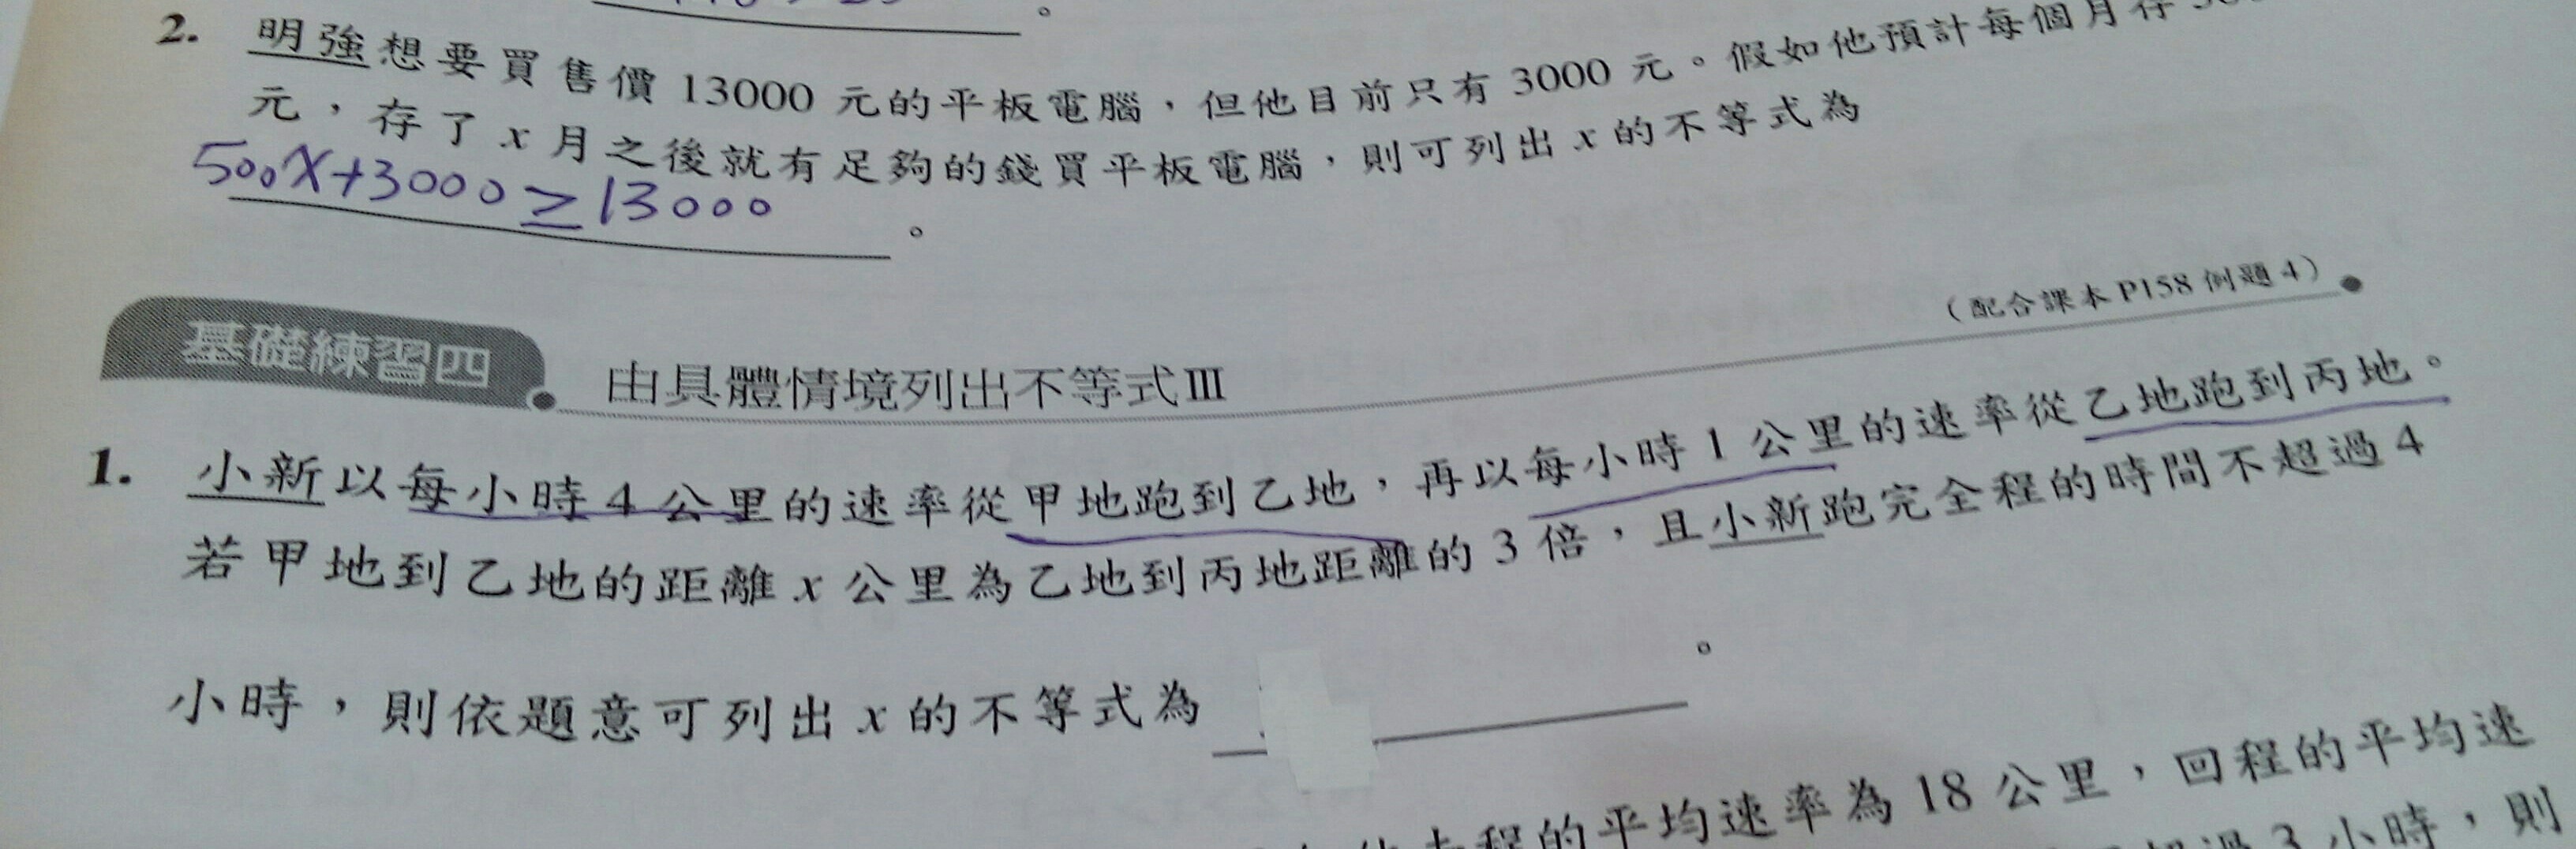 2. 明強想要買售價 13000 元的平板電腦，但他目前只有 3000 元。假如他預計每個月存
元，存了 x 月之後就有足夠的錢買平板電腦，則可列出 x 的不等式為
500x+3000≥13000。
(配合課本P158 例題4)
基礎練習四 由具體情境列出不等式III
1. 小新以每小時 4 公里的速率從甲地跑到乙地，再以每小時 1 公里的速率從乙地跑到丙地。
若甲地到乙地的距離 x 公里為乙地到丙地距離的 3 倍，且小新跑完全程的時間不超過 4
小時，則依題意可列出 x 的不等式為。
程的平均速率為 18 公里，回程的平均速
過 3 小時，則